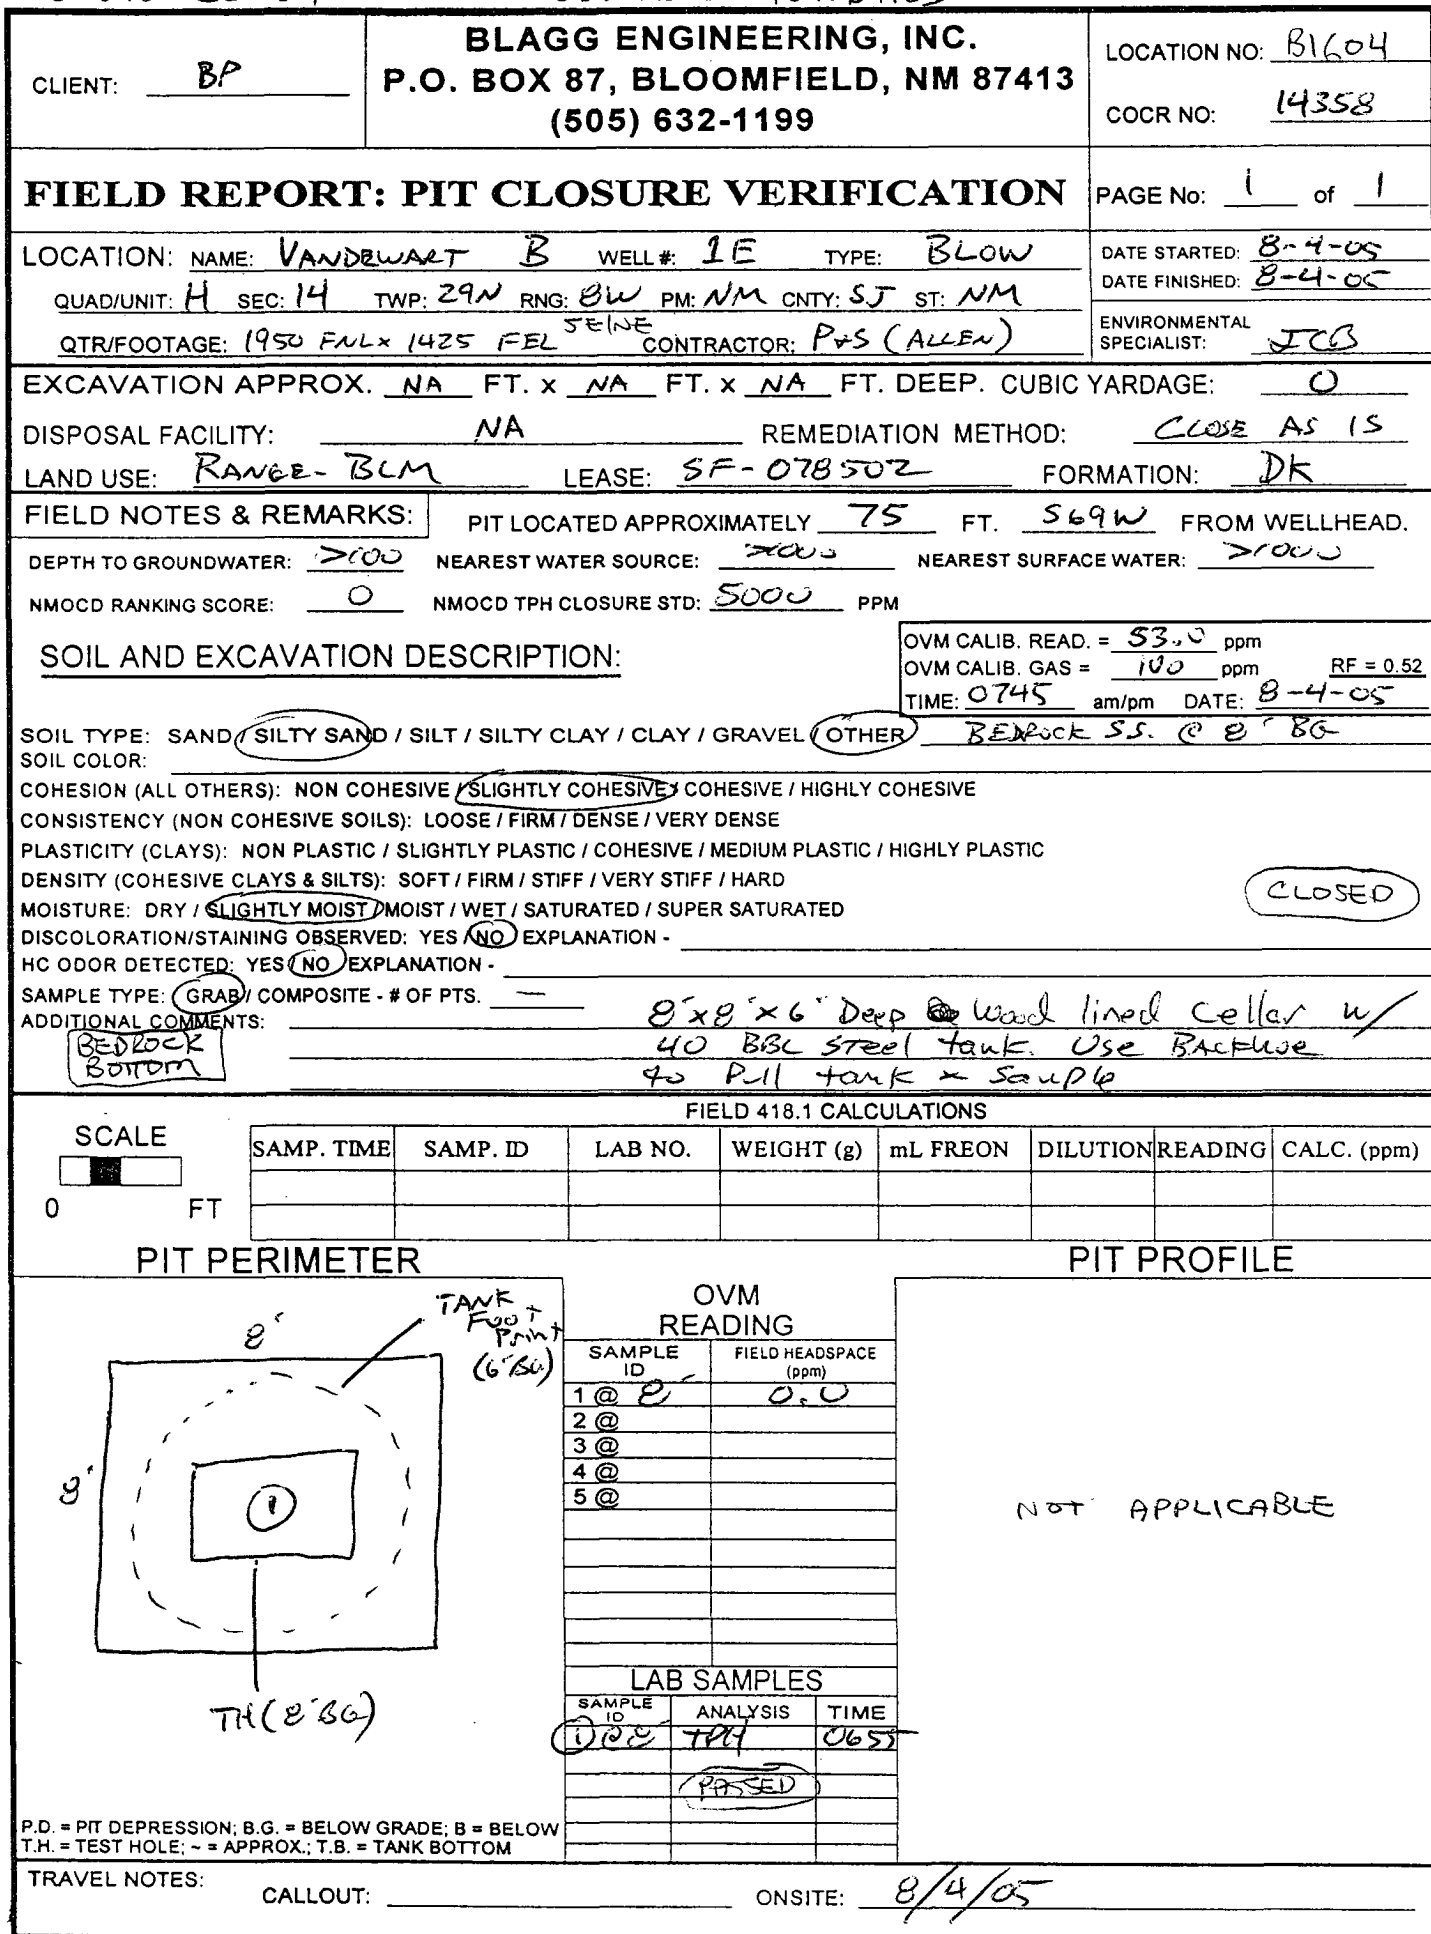 BLAGG ENGINEERING, INC.
P.O. BOX 87, BLOOMFIELD, NM 87413
(505) 632-1199
CLIENT: BP
LOCATION NO: B1604
COCR NO: 14358
FIELD REPORT: PIT CLOSURE VERIFICATION
PAGE No: 1 of 1
LOCATION: NAME: VANDEWART B WELL #: 1E TYPE: BLOW
QUAD/UNIT: H SEC: 14 TWP: 29N RNG: 8W PM: NM CNTY: SJ ST: NM
QTR/FOOTAGE: 1950 FNL x 1425 FEL SE/NE CONTRACTOR: P+S (ALLEN)
DATE STARTED: 8-4-05
DATE FINISHED: 8-4-05
ENVIRONMENTAL
SPECIALIST: JCB
EXCAVATION APPROX. NA FT. x NA FT. x NA FT. DEEP. CUBIC YARDAGE: 0
DISPOSAL FACILITY: NA REMEDIATION METHOD: CLOSE AS IS
LAND USE: RANGE - BLM LEASE: SF-078502 FORMATION: DK
FIELD NOTES & REMARKS: PIT LOCATED APPROXIMATELY 75 FT. S69W FROM WELLHEAD.
DEPTH TO GROUNDWATER: >100 NEAREST WATER SOURCE: >1000 NEAREST SURFACE WATER: >1000
NMOCD RANKING SCORE: 0 NMOCD TPH CLOSURE STD: 5000 PPM
SOIL AND EXCAVATION DESCRIPTION:
OVM CALIB. READ. = 53.0 ppm
OVM CALIB. GAS = 100 ppm RF = 0.52
TIME: 0745 am/pm DATE: 8-4-05
SOIL TYPE: SAND / SILTY SAND / SILT / SILTY CLAY / CLAY / GRAVEL / OTHER BEDROCK S.S. @ 8' BG
SOIL COLOR:
COHESION (ALL OTHERS): NON COHESIVE / SLIGHTLY COHESIVE / COHESIVE / HIGHLY COHESIVE
CONSISTENCY (NON COHESIVE SOILS): LOOSE / FIRM / DENSE / VERY DENSE
PLASTICITY (CLAYS): NON PLASTIC / SLIGHTLY PLASTIC / COHESIVE / MEDIUM PLASTIC / HIGHLY PLASTIC
DENSITY (COHESIVE CLAYS & SILTS): SOFT / FIRM / STIFF / VERY STIFF / HARD
MOISTURE: DRY / SLIGHTLY MOIST / MOIST / WET / SATURATED / SUPER SATURATED
CLOSED
DISCOLORATION/STAINING OBSERVED: YES / NO EXPLANATION -
HC ODOR DETECTED: YES / NO EXPLANATION -
SAMPLE TYPE: GRAB / COMPOSITE - # OF PTS. —
ADDITIONAL COMMENTS: 8'x8'x6' Deep Wood lined Cellar w/
40 BBL Steel tank. Use BACKHOE
to Pull tank & Sample
BEDROCK
BOTTOM
FIELD 418.1 CALCULATIONS
SCALE
0 FT
SAMP. TIME SAMP. ID LAB NO. WEIGHT (g) mL FREON DILUTION READING CALC. (ppm)
PIT PERIMETER
PIT PROFILE
8'
8'
TANK
FOOT
Print
(6' BG)
1
TH (8' BG)
OVM
READING
SAMPLE ID FIELD HEADSPACE (ppm)
1 @ 8' 0.0
2 @
3 @
4 @
5 @
NOT APPLICABLE
LAB SAMPLES
SAMPLE ID ANALYSIS TIME
1 @ 8' TPH 0655
PASSED
P.D. = PIT DEPRESSION; B.G. = BELOW GRADE; B = BELOW
T.H. = TEST HOLE; ~ = APPROX.; T.B. = TANK BOTTOM
TRAVEL NOTES:
CALLOUT: ONSITE: 8/4/05